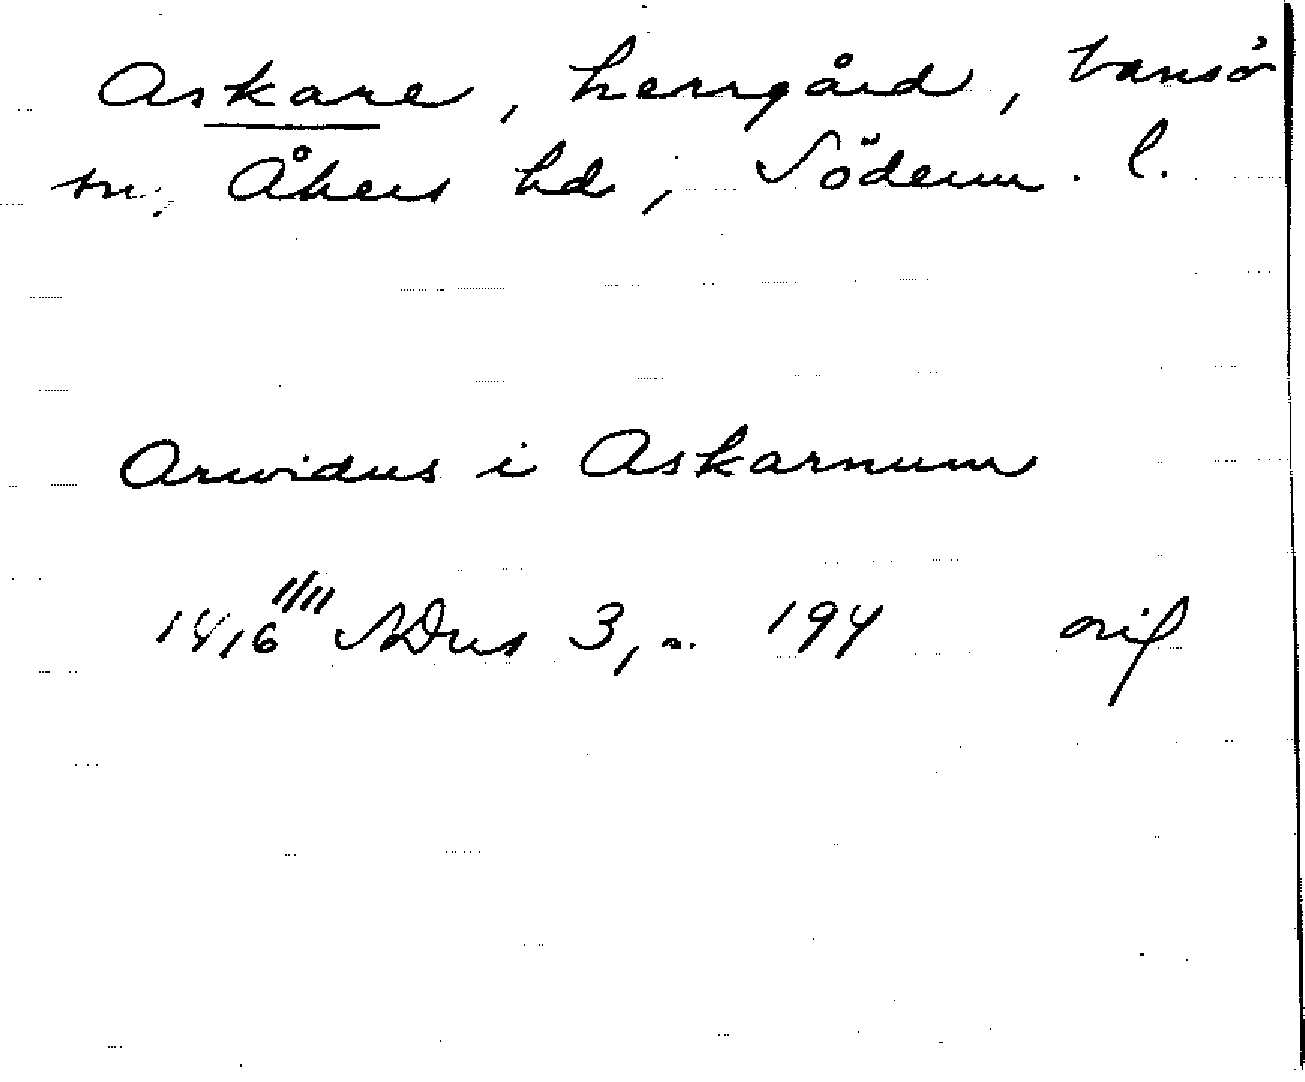 Askare, herrgård, Vansö
sn, Åkers hd, Söderm. l.
Arvidus i Askarnum
1416 11/11 SDns 3, s. 194 orig